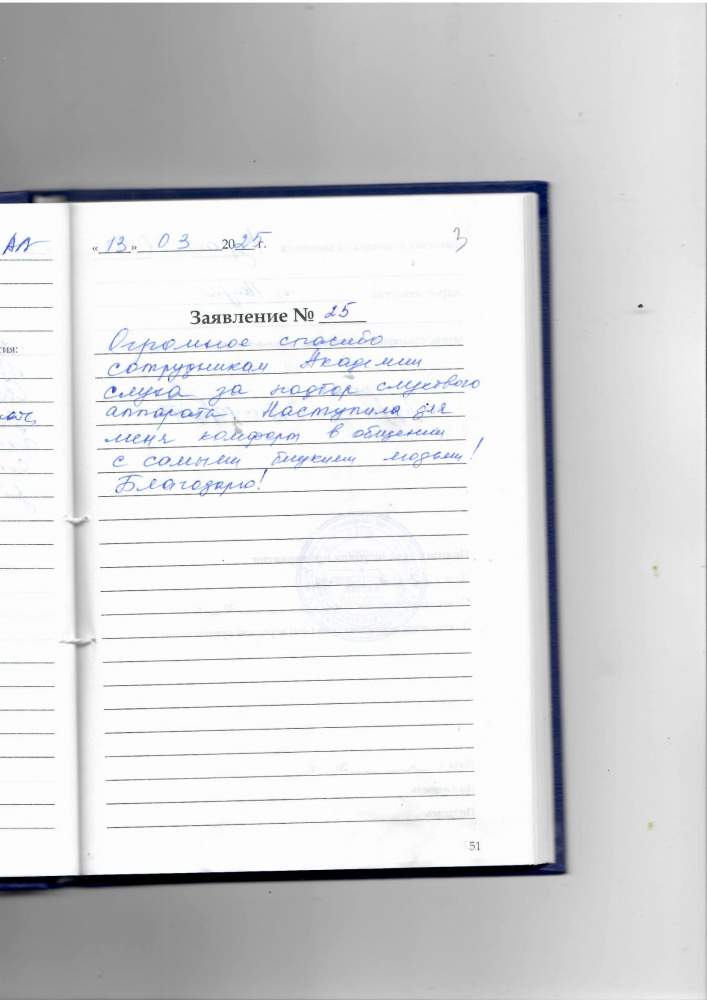 АЛ
«13» 03 2025 г.
3
Заявление № 25
сия:
Огромное спасибо
сотрудникам Академии
слуха за подбор слухового
аппарата. Наступила для
меня комфорт в общении
с самыми близкими людьми!
Благодарю!
51